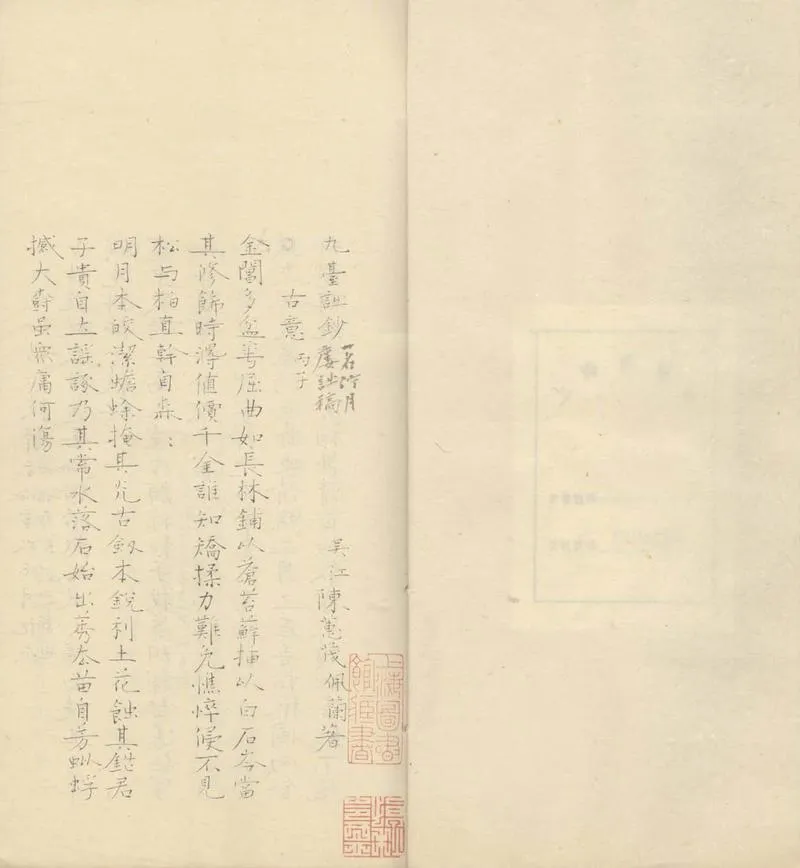 九臺詩鈔 一名竹月廔詩稿 吳江陳蕙茂佩蘭著
古意 丙子
金閶多盆䓁屈曲如長林鋪以蒼苔蘚插以白石岑當
其修飾時澤值價千金誰知矯揉力難免憔悴侵不見
松与柏直幹自森:
明月本皎潔蟾蜍掩其光古劔本銳利土花蝕其鋩君
子貴自立謠諑乃其常水落石始出莠去苗自芳蚍蜉
撼大𣗳虽眾庸何傷
上海圖書館藏書